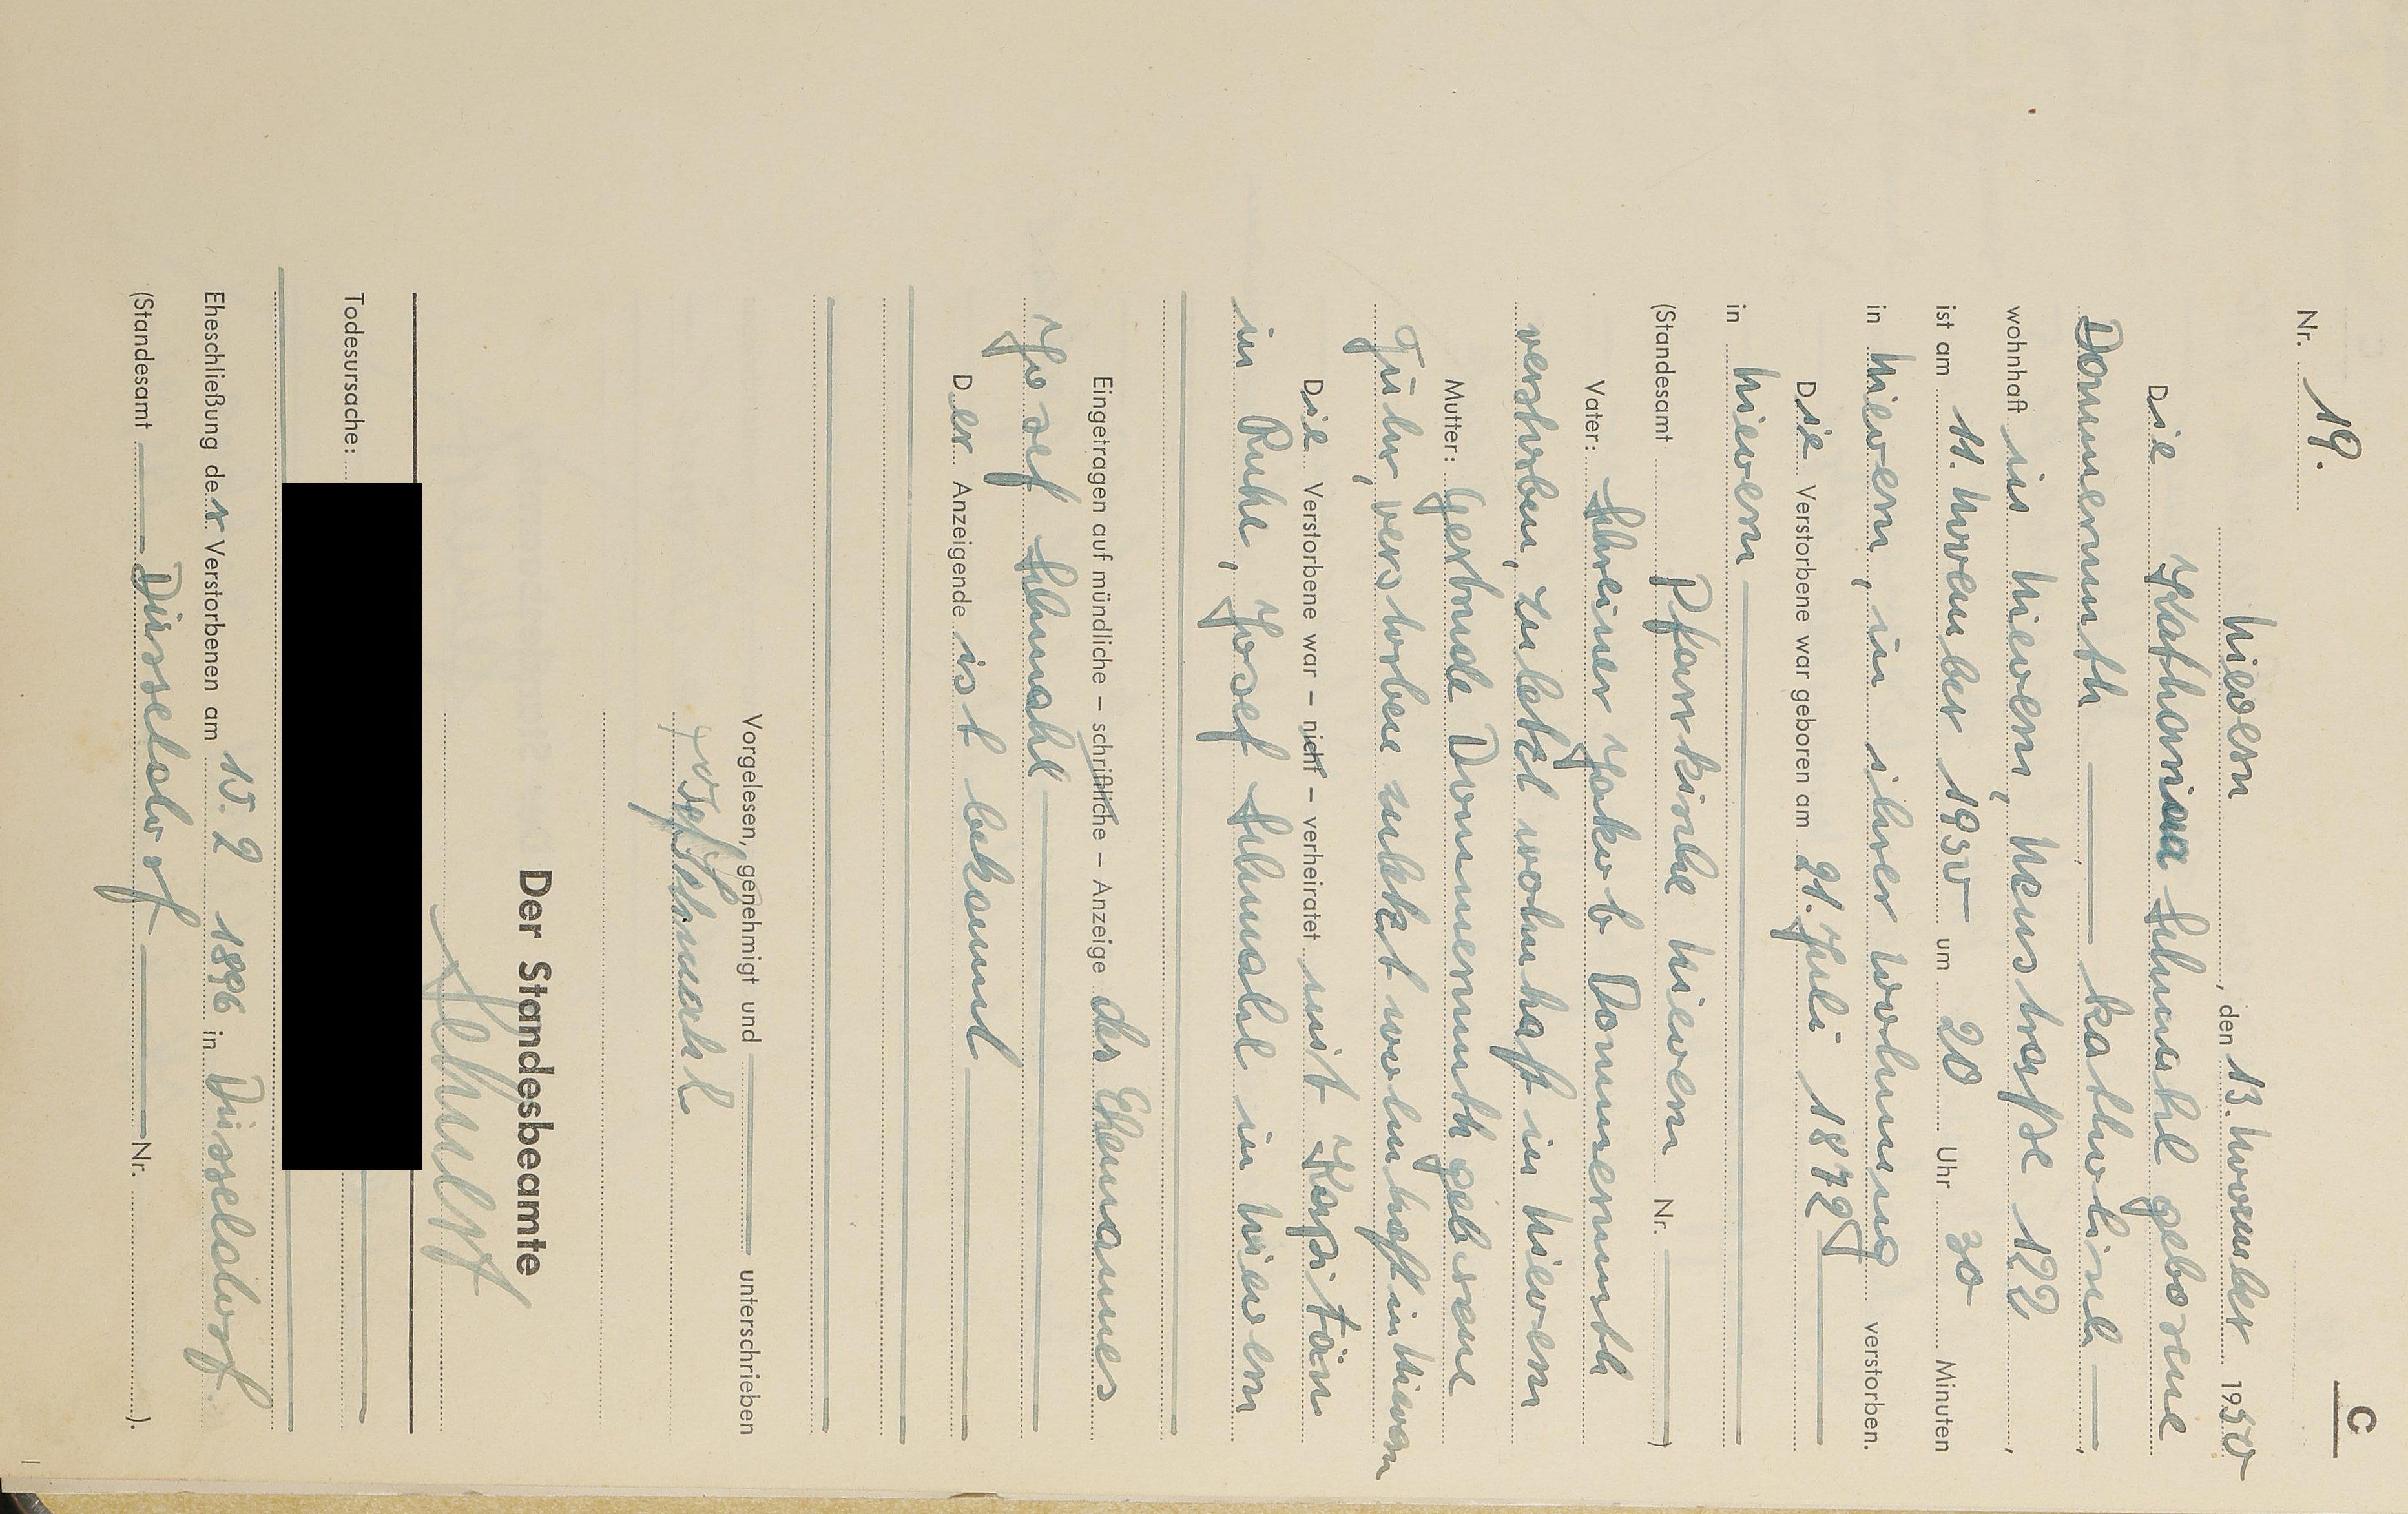 C
Nr. 19.
Nievern, den 13. November 1950
Die Katharina Schmahl geborene
Dommermuth katholisch,
wohnhaft in Nievern, Neustraße 122,
ist am 11. November 1950 um 20 Uhr 30 Minuten
in Nievern, in ihrer Wohnung verstorben.
Die Verstorbene war geboren am 21. Juli 1872
in Nievern
(Standesamt Pfarrkirche Nievern Nr. )
Vater: Schreiner Jakob Dommermuth
verstorben, zuletzt wohnhaft in Nievern
Mutter: Gertrude Dommermuth geborene
verstorben zuletzt wohnhaft in Nievern
Die Verstorbene war – nicht – verheiratet mit Kapitän
in Ruhe, Josef Schmahl in Nievern
Eingetragen auf mündliche – schriftliche – Anzeige des Ehemannes
Josef Schmahl
Der Anzeigende ist bekannt
Vorgelesen, genehmigt und unterschrieben
Josef Schmahl
Der Standesbeamte
Todesursache:
Eheschließung der Verstorbenen am 15. 2 1896 in Düsseldorf
(Standesamt Düsseldorf Nr. ).